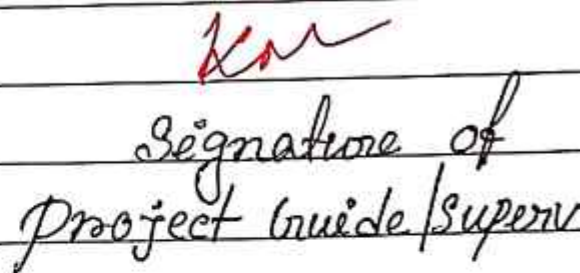 Signature of
Project Guide/Superv